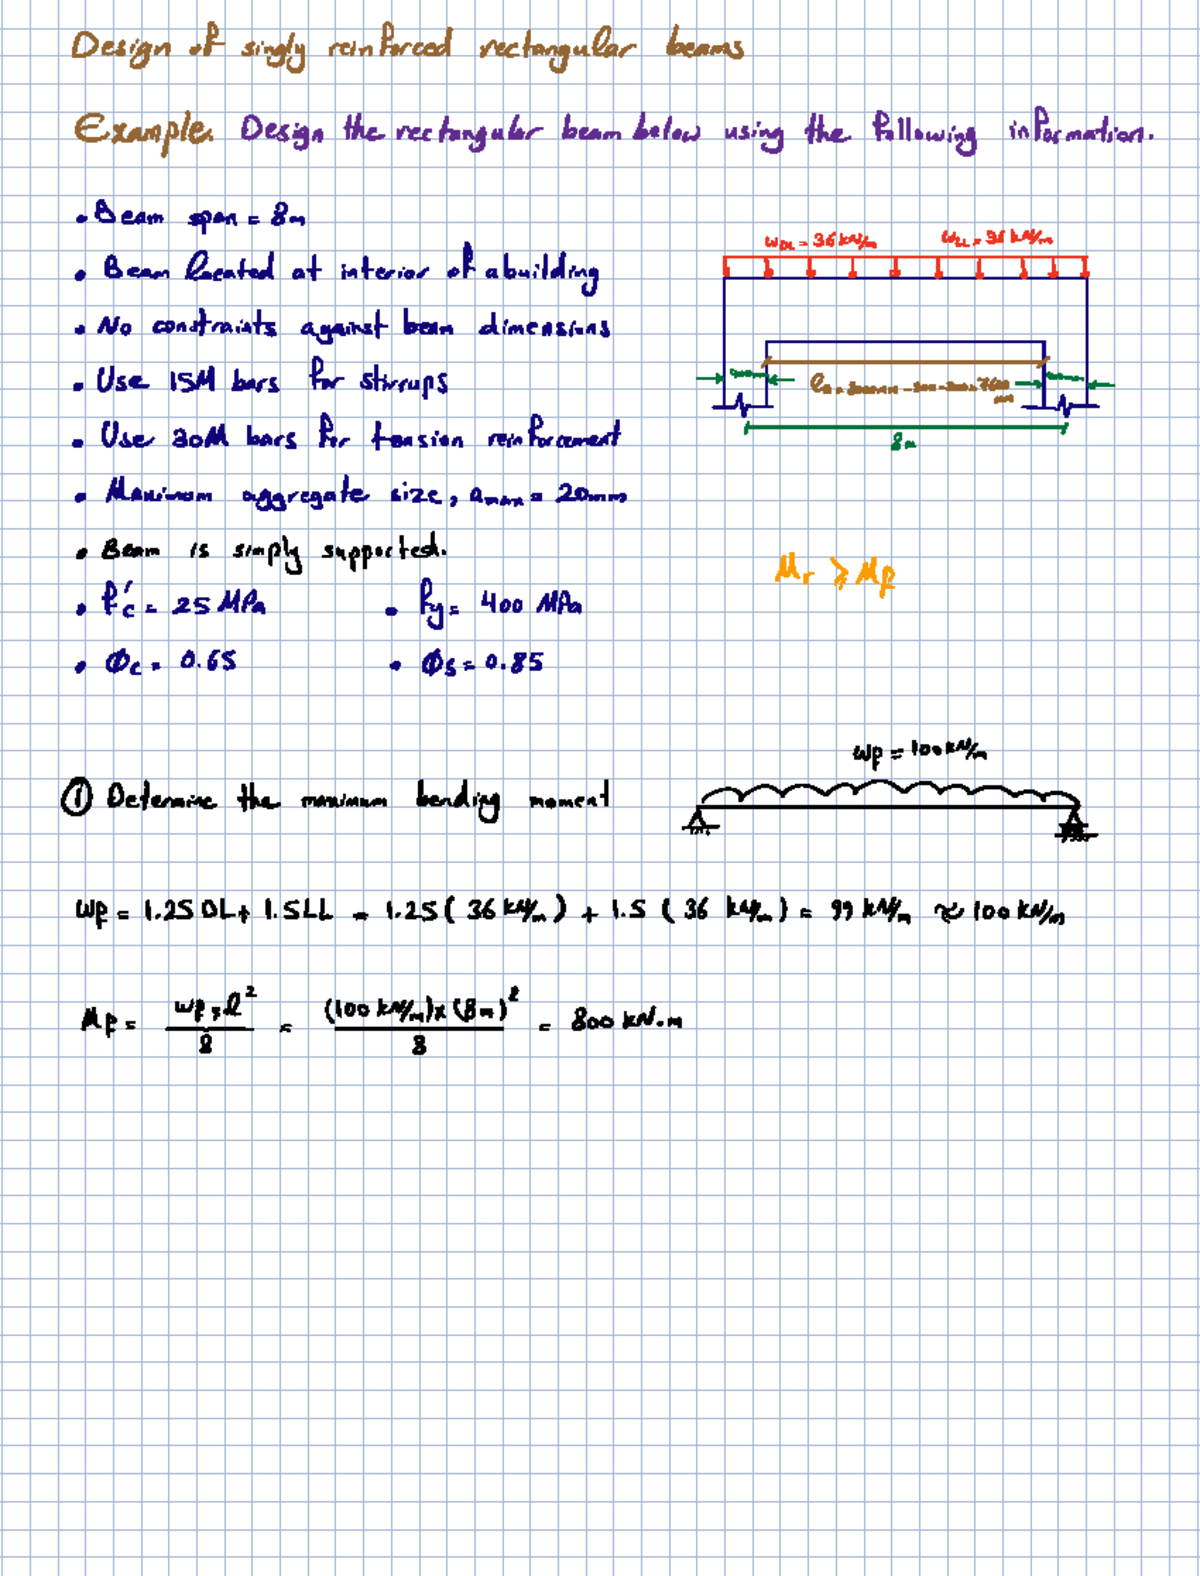 Design of singly reinforced rectangular beams
Example: Design the rectangular beam below using the following information.
• Beam span = 8m
• Beam located at interior of a building
• No constraints against beam dimensions
• Use 15M bars for stirrups
• Use 30M bars for tension reinforcement
• Maximum aggregate size, amax = 20mm
• Beam is simply supported.
• f'c = 25 MPa • fy = 400 MPa
• Φc = 0.65 • Φs = 0.85
wDL = 36 kN/m wLL = 36 kN/m
8m
Mr ≥ Mf
wf = 100 kN/m
① Determine the maximum bending moment
wf = 1.25 DL + 1.5LL = 1.25 (36 kN/m) + 1.5 (36 kN/m) = 99 kN/m ≈ 100 kN/m
Mf = wf × l² / 8 = (100 kN/m) × (8m)² / 8 = 800 kN.m